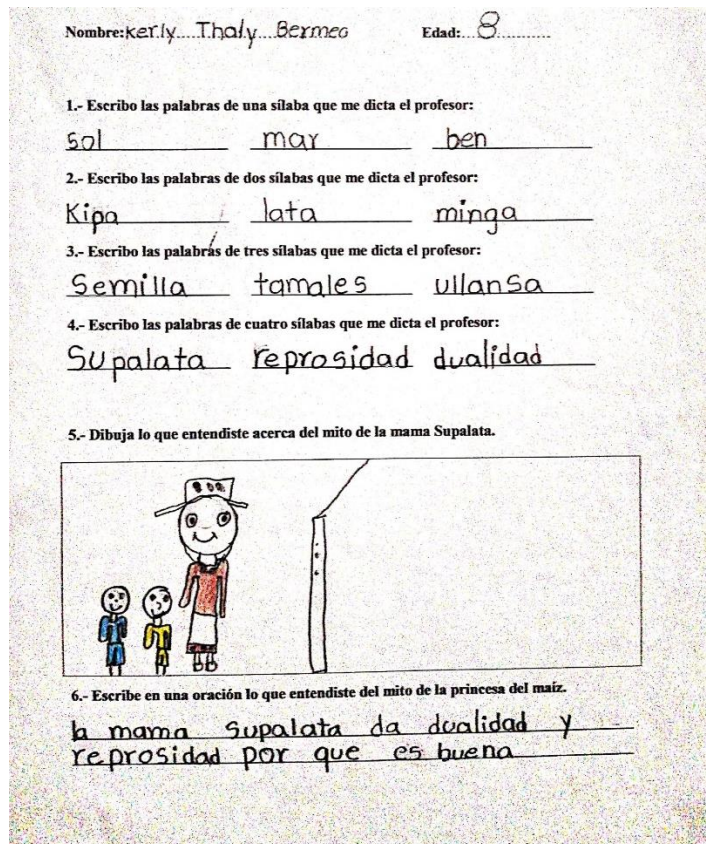 Nombre: Kerly Thaly Bermeo Edad: 8
1.- Escribo las palabras de una sílaba que me dicta el profesor:
sol mar ben
2.- Escribo las palabras de dos sílabas que me dicta el profesor:
Kipa lata minga
3.- Escribo las palabras de tres sílabas que me dicta el profesor:
Semilla tamales ullansa
4.- Escribo las palabras de cuatro sílabas que me dicta el profesor:
Supalata reprosidad dualidad
5.- Dibuja lo que entendiste acerca del mito de la mama Supalata.
6.- Escribe en una oración lo que entendiste del mito de la princesa del maíz.
la mama Supalata da dualidad y
reprosidad por que es buena